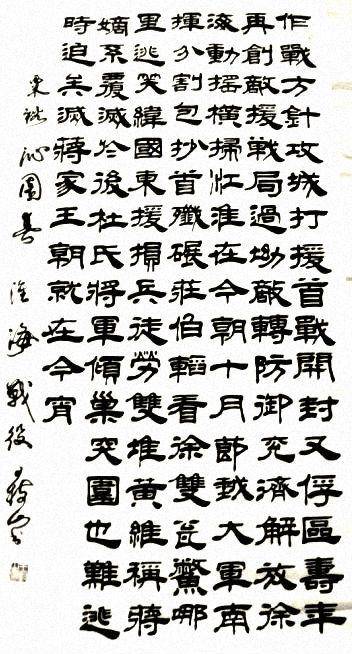 作戰方針攻城打援首戰開封又俘區壽年
再創敵援戰局過坳敵轉防御兗濟解放徐
滾動搖橫掃江淮在今朝十月節越大軍南
揮分割包抄首殲碾莊伯韜看徐雙驚哪
里逃笑緯國東援損兵徒勞雙堆黃維稱蔣
嫡系覆滅於後杜氏將軍傾巢突圍也難逃
時迫矣滅蔣家王朝就在今宵
沁園春淮海戰役